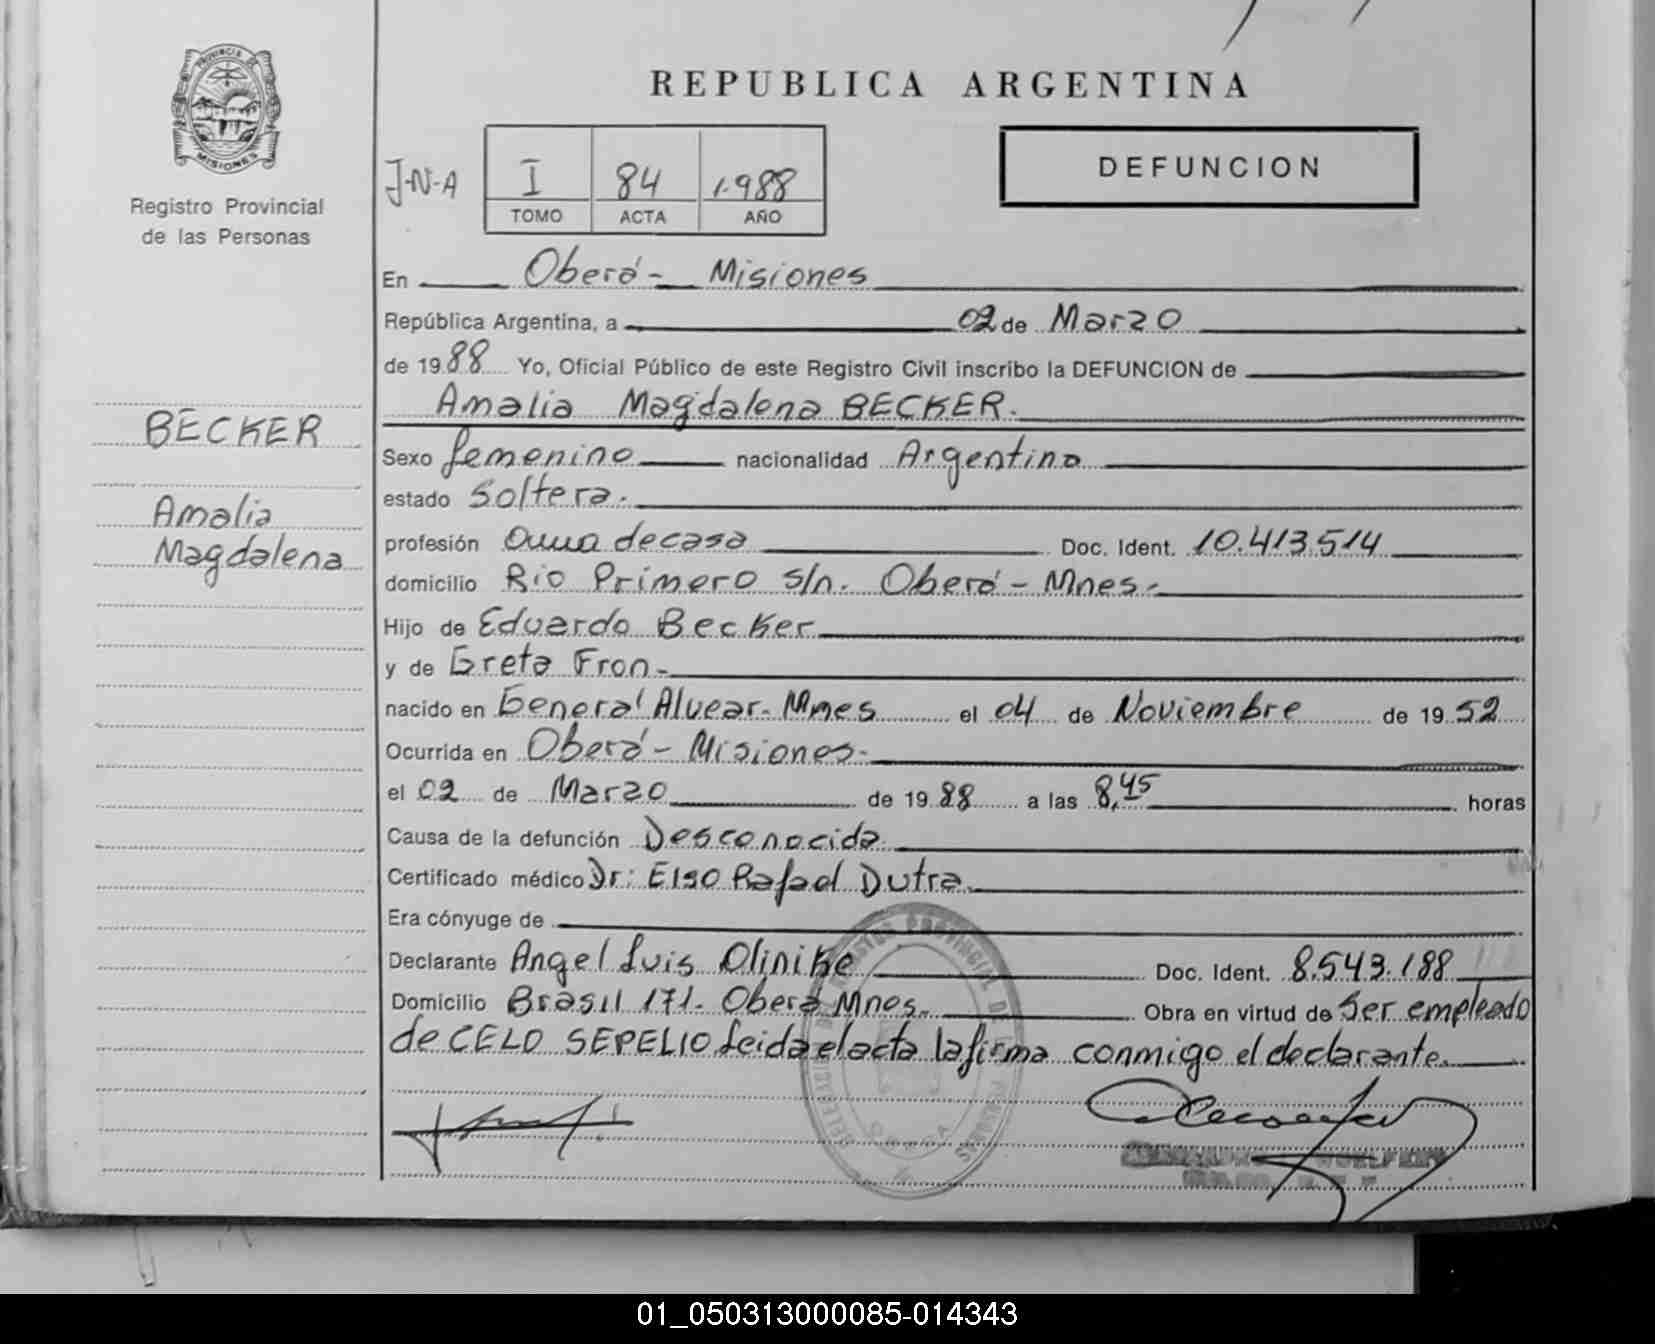 REPUBLICA ARGENTINA
PROVINCIA DE
MISIONES
Registro Provincial
de las Personas
J-N-A
I 84 1.988
TOMO ACTA AÑO
DEFUNCION
En Oberá - Misiones
República Argentina, a 02 de Marzo
de 1988 Yo, Oficial Público de este Registro Civil inscribo la DEFUNCION de
Amalia Magdalena BECKER.
BECKER
Amalia
Magdalena
Sexo femenino nacionalidad Argentina
estado Soltera.
profesión Ama de casa Doc. Ident. 10.413.514
domicilio Rio Primero s/n. Oberá - Mnes.-
Hijo de Eduardo Becker
y de Greta Fron.-
nacido en General Alvear. Mnes el 04 de Noviembre de 1952
Ocurrida en Oberá - Misiones.-
el 02 de Marzo de 1988 a las 8,45 horas
Causa de la defunción Desconocida.
Certificado médico Dr: Elso Rafael Dutra.
Era cónyuge de
Declarante Angel Luis Olinike Doc. Ident. 8.543.188
Domicilio Brasil 171. Oberá Mnes. Obra en virtud de Ser empleado
de CELO SEPELIO Leida el acta la firma conmigo el declarante.
01_050313000085-014343